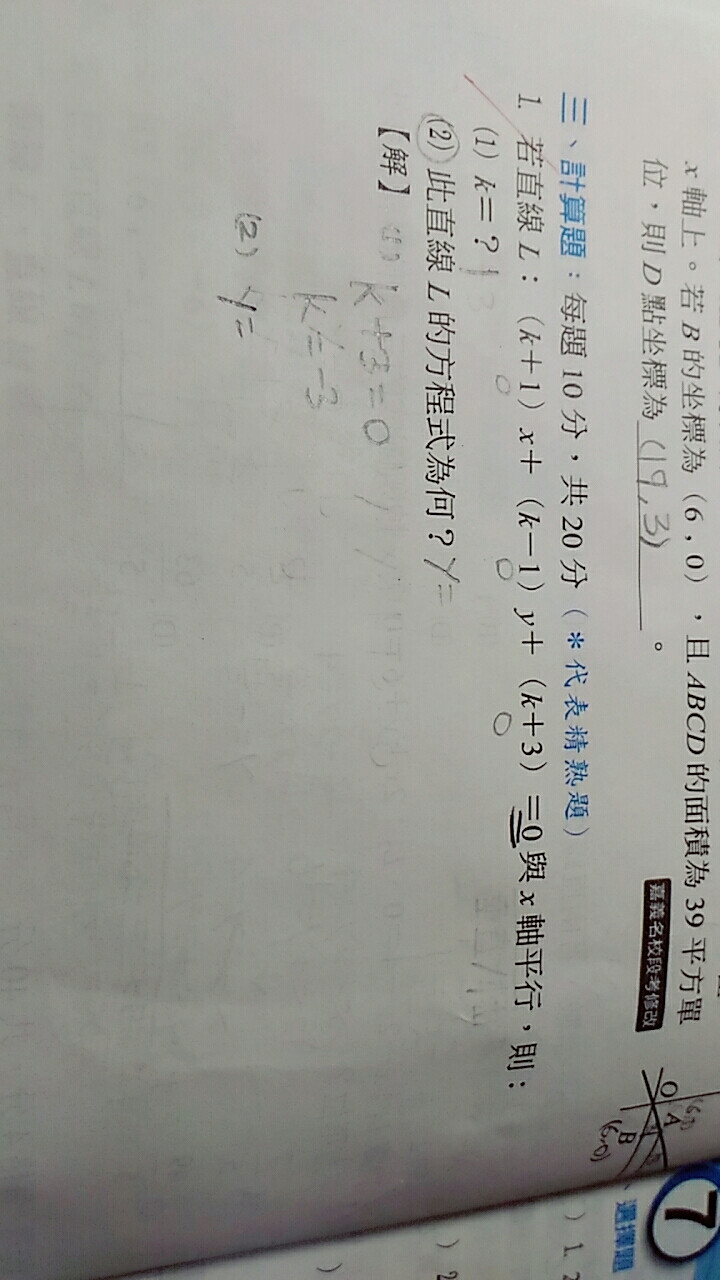 x 軸上。若 B 的坐標為(6,0),且 ABCD 的面積為 39 平方單
位,則 D 點坐標為 (19,3) 。
嘉義名校段考修改
三、計算題:每題 10 分,共 20 分(*代表精熟題)
1. 若直線 L:(k+1)x+(k-1)y+(k+3)=0 與 x 軸平行,則:
(1) k=?
(2) 此直線 L 的方程式為何? y=
【解】(1) k+3=0
k=-3
(2) y=
O
A
B
(6,0)
7
選擇題
) 1.
) 2
)